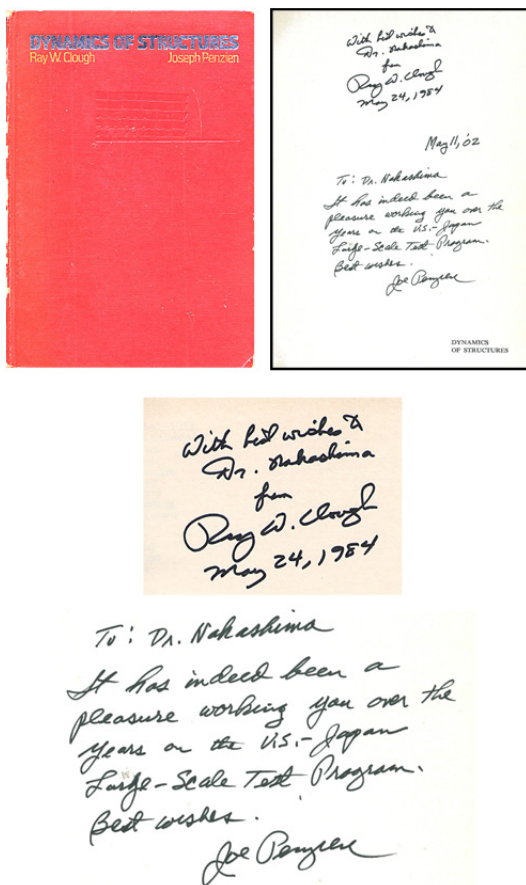 DYNAMICS OF STRUCTURES
Ray W. Clough Joseph Penzien
With best wishes to
Dr. Nakashima
from
Ray W. Clough
May 24, 1984
May 11, '02
To: Dr. Nakashima
It has indeed been a
pleasure working you over the
years on the U.S.-Japan
Large-Scale Test Program.
Best wishes.
Joe Penzien
DYNAMICS
OF STRUCTURES
With best wishes to
Dr. Nakashima
from
Ray W. Clough
May 24, 1984
To: Dr. Nakashima
It has indeed been a
pleasure working you over the
years on the U.S.-Japan
Large-Scale Test Program.
Best wishes.
Joe Penzien